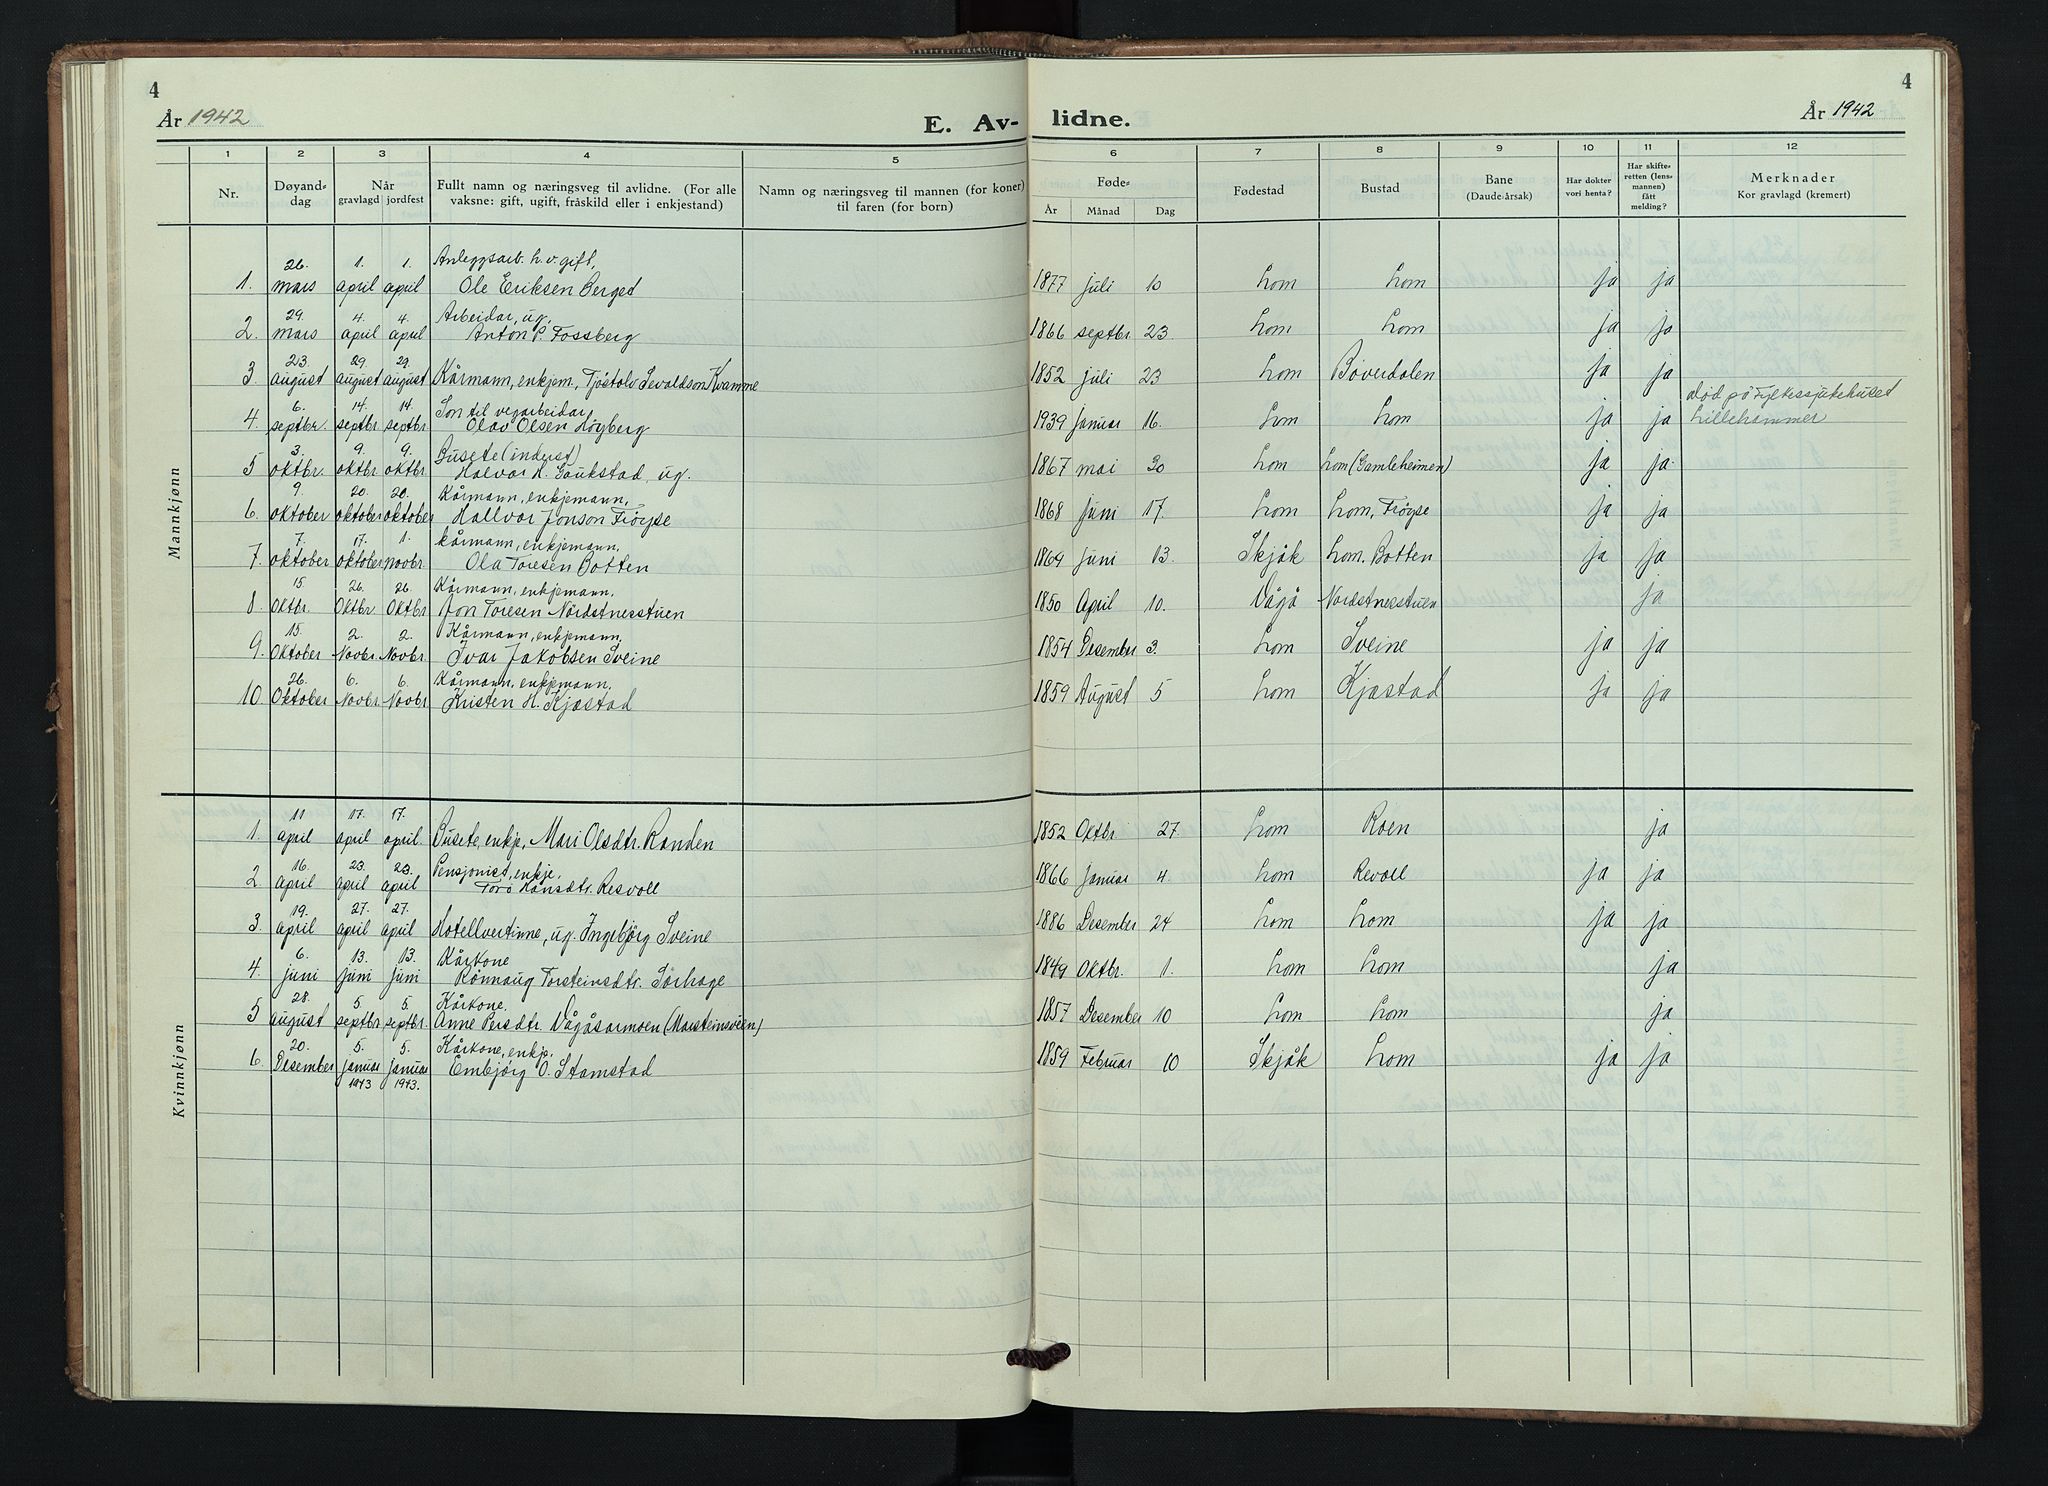 4
År 1942
E. Av-
lidne.
4
År 1942
1 2 3 4 5 6 7 8 9 10 11 12
Nr.
Døyand-
dag
Når
gravlagd jordfest
Fullt namn og næringsveg til avlidne. (For alle
vaksne: gift, ugift, fråskild eller i enkjestand)
Namn og næringsveg til mannen (for koner)
til faren (for born)
Føde-
År Månad Dag
Fødestad
Bustad
Bane
(Daude-årsak)
Har dokter
vori henta?
Har skifte-
retten (lens-
mannen)
fått
melding?
Merknader
Kor gravlagd (kremert)
Mannkjønn
26. 1. 1. Anleggsarb. h.v. gift,
1. mars april april Ole Eriksen Berget 1877 juli 10 Lom Lom ja ja
29. 4. 4. Arbeidar, ug.
2. mars april april Anton P. Fossberg 1866 septbr. 23 Lom Lom ja ja
23. 29. 29.
3. august august august Kårmann, enkjem, Tjøstolv Sevaldson Kvamme 1852 juli 23 Lom Bøverdalen ja ja
6. 14. 14. Son til vegarbeidar død på Fylkessjukehuset
4. septbr. septbr septbr Olav Olsen Høyberg 1939 Januar 16. Lom Lom ja ja Lillehammer
3. 9. 9. Busete (inderst)
5 oktbr. oktbr oktbr Halvor H. Gaukstad, ug. 1867 mai 30 Lom Lom (Gamleheimen) ja ja
9. 20. 20. Kårmann, enkjemann,
6. oktober oktober oktober Hallvar Jonson Frøyse 1868 Juni 17. Lom Lom, Frøyse ja ja
7. 17. 1. Kårmann, enkjemann.
7. oktober oktober novbr. Ola Toresen Botten 1864 Juni 13. Skjåk Lom. Botten ja ja
15. 26. 26. Kårmann, enkjemann.
8. Oktbr. Oktbr Oktbr Jon Toresen Nordstnesstuen 1850 April 10. Vågå Nordstnesstuen ja
15. 2. 2. Kårmann, enkjemann.
9. Oktober Novbr. Novbr. Ivar Jakobsen Sveine 1854 Desember 3. Lom Sveine ja ja
26. 6. 6. Kårmann, enkjemann.
10 Oktober Novbr. Novbr. Kristen H. Kjæstad 1859 August 5 Lom Kjæstad ja ja
Kvinnkjønn
11 17. 17.
1. april april april. Busete, enkje, Mari Olsdtr. Randen 1852 Oktbr 27. Lom Roen ja
16. 23. 23. Pensjonist, enkje.
2. April april april Toro Hansdtr. Resvoll 1866 Januar 4. Lom Revoll ja ja
19. 27. 27.
3. april april april Hotellvertinne, ug. Ingebjørg Sveine 1886 Desember 24 Lom Lom ja ja
6. 13. 13. Kårkone
4. juni juni Juni Rønnaug Torsteinsdtr. Sørhage 1849 Oktbr. 1. Lom Lom ja
28. 5. 5. Kårkone.
5 august septbr septbr. Anne Persdtr. Vågåsarmoen (Marsteinsveen) 1857 Desember 10 Lom Lom ja
20. 5. 5. Kårkone, enkje.
6. Desember Januar Januar Embjørg O. Stamstad 1859 Februar 10 Skjåk Lom ja ja
1943 1943.